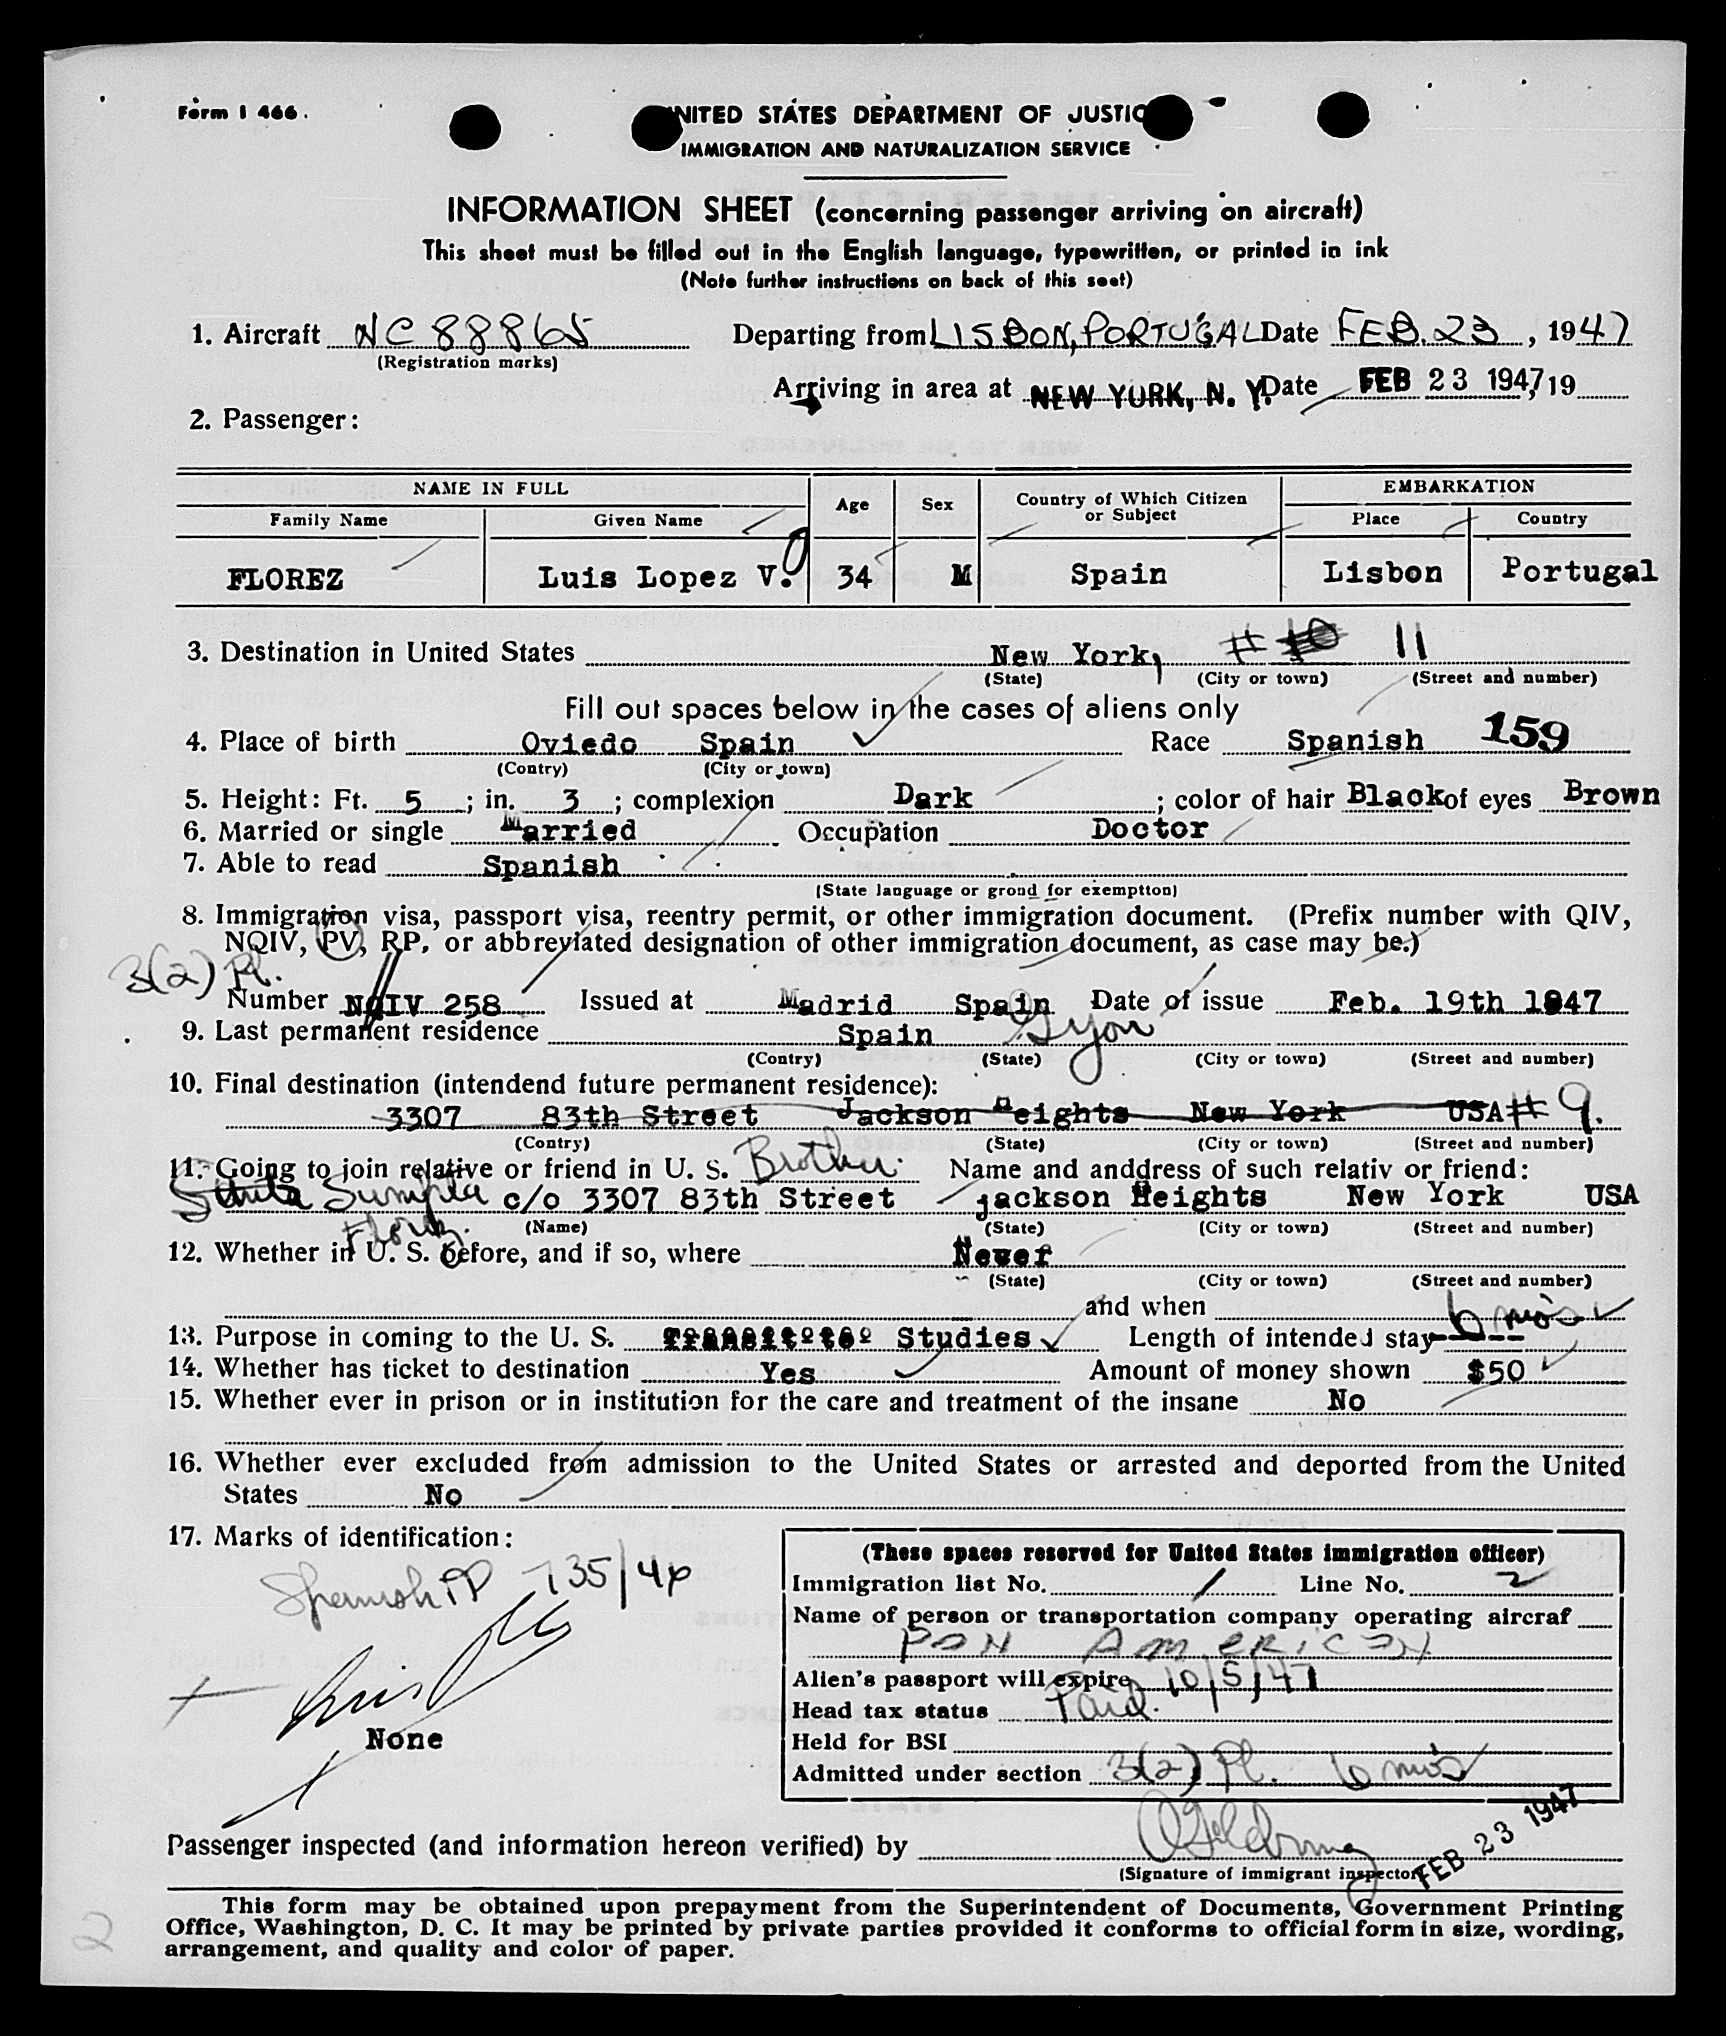 Form I 466.
UNITED STATES DEPARTMENT OF JUSTIC
IMMIGRATION AND NATURALIZATION SERVICE
INFORMATION SHEET (concerning passenger arriving on aircraft)
This sheet must be filled out in the English language, typewritten, or printed in ink
(Note further instructions on back of this seet)
1. Aircraft NC 88865 Departing from LISBON, PORTUGAL Date FEB. 23, 1947
(Registration marks)
Arriving in area at NEW YORK, N. Y. Date FEB 23 1947, 19
2. Passenger:
NAME IN FULL Age Sex Country of Which Citizen or Subject EMBARKATION
Family Name Given Name Place Country
FLOREZ Luis Lopez V. 34 M Spain Lisbon Portugal
3. Destination in United States New York, # 10 11
(State) (City or town) (Street and number)
Fill out spaces below in the cases of aliens only
4. Place of birth Oviedo Spain Race Spanish 159
(Contry) (City or town)
5. Height: Ft. 5; in. 3; complexion Dark; color of hair Black of eyes Brown
6. Married or single Married. Occupation Doctor
7. Able to read Spanish
(State language or grond for exemptton)
8. Immigration visa, passport visa, reentry permit, or other immigration document. (Prefix number with QIV,
NQIV, PV, RP, or abbreviated designation of other immigration document, as case may be.)
3(2) Pl.
Number NQIV 258 Issued at Madrid Spain Date of issue Feb. 19th 1947
9. Last permanent residence Spain Gyon
(Contry) (State) (City or town) (Street and number)
10. Final destination (intendend future permanent residence):
3307 83th Street Jackson Heights New York USA # 9.
(Contry) (State) (City or town) (Street and number)
11. Going to join relative or friend in U. S. Brother. Name and anddress of such relativ or friend:
Sumpta c/o 3307 83th Street jackson Heights New York USA
Florez.
(Name) (State) (City or town) (Street and number)
12. Whether in U. S. before, and if so, where Never
(State) (City or town) (Street and number)
and when
13. Purpose in coming to the U. S. Studies Length of intended stay 6 mos
14. Whether has ticket to destination Yes Amount of money shown $50
15. Whether ever in prison or in institution for the care and treatment of the insane No
16. Whether ever excluded from admission to the United States or arrested and deported from the United
States No
17. Marks of identification:
Spanish PP 735/46
Luis
None
(These spaces reserved for United States immigration officer)
Immigration list No. 1 Line No. 2
Name of person or transportation company operating aircraf
PAN AMERICAN
Alien's passport will expire 10/5/47
Head tax status Paid.
Held for BSI
Admitted under section 3(2) Pl. 6 mos
Passenger inspected (and information hereon verified) by
(Signature of immigrant inspector)
FEB 23 1947
This form may be obtained upon prepayment from the Superintendent of Documents, Government Printing
Office, Washington, D. C. It may be printed by private parties provided it conforms to official form in size, wording,
arrangement, and quality and color of paper.
2